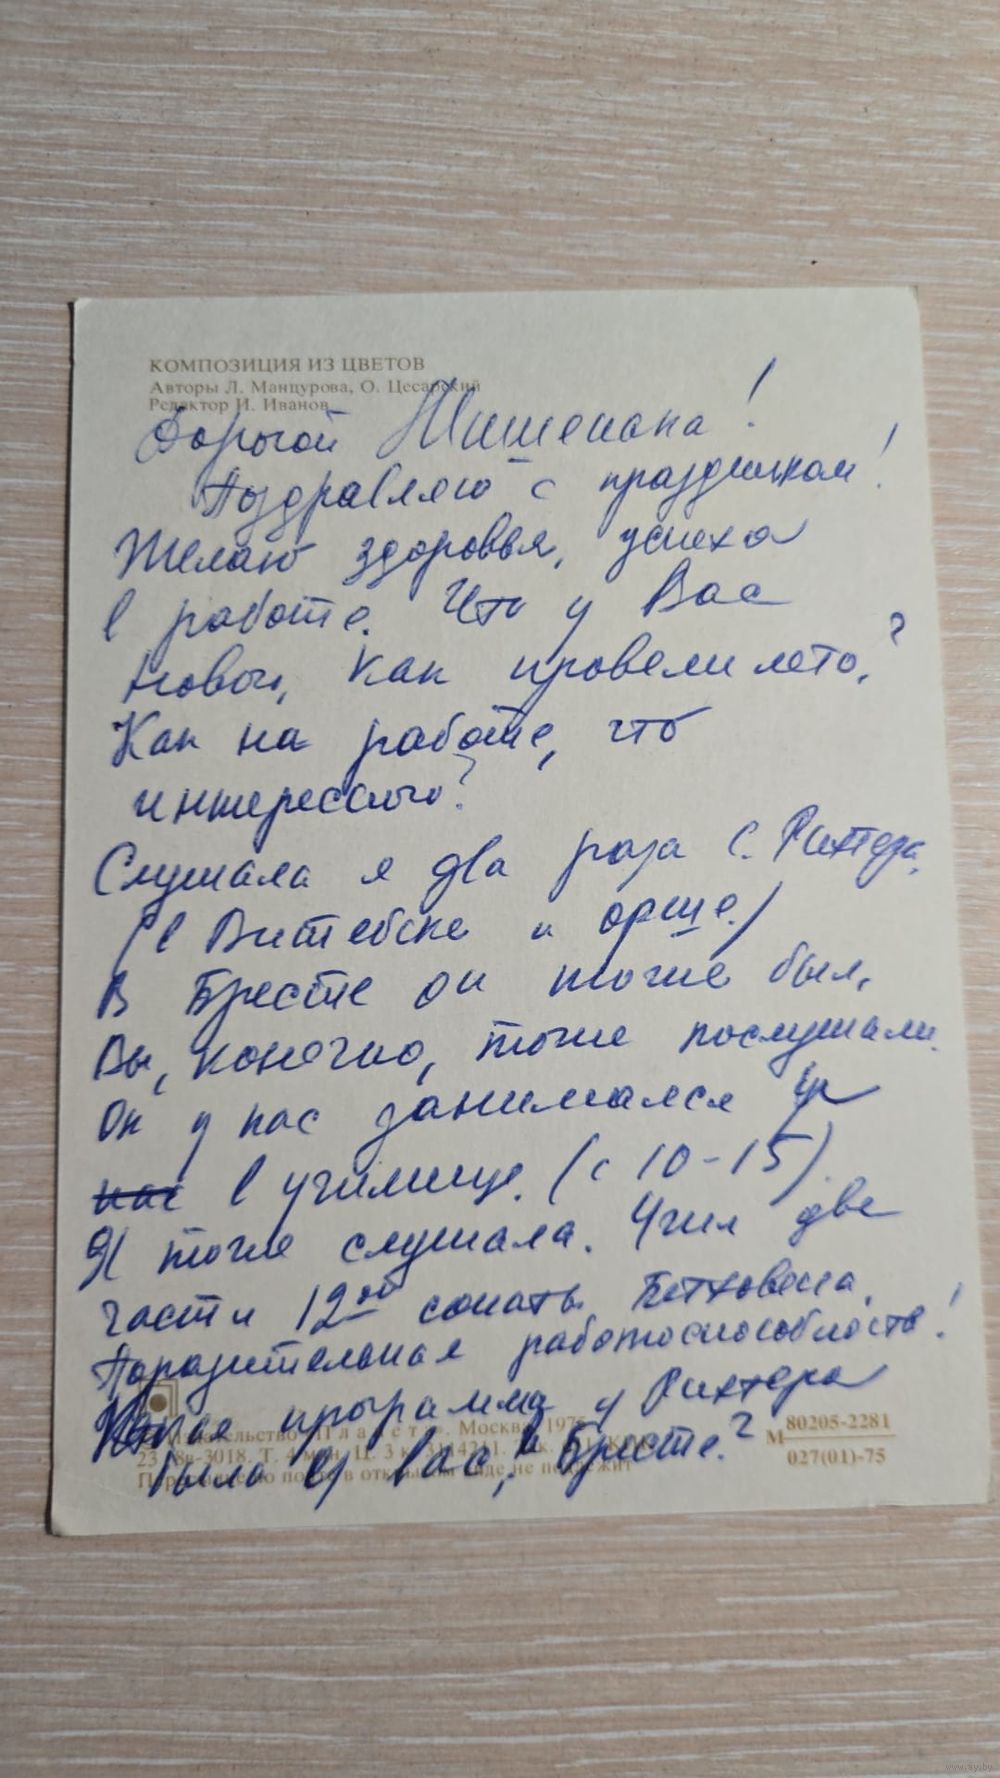 КОМПОЗИЦИЯ ИЗ ЦВЕТОВ
Авторы Л. Манцурова, О. Цесарский
Редактор И. Иванов
Дорогой !
Поздравляю с праздником!
Желаю здоровья, успеха
в работе. Что у Вас
нового, как провели лето,?
Как на работе, что
интересного?
Слушала я два раза С. Рихтера,
(в Витебске и Орше.)
В Бресте он тоже был,
Вы, конечно, тоже послушали.
Он у нас занимался
нас в училище. (с 10-15).
Я тоже слушала. Учил две
части 12ой сонаты Бетховена.
Поразительная работоспособность!
Какая программа у Рихтера
была у вас, в Бресте?
Издательство «Планета». Москва 1975
80205-2281
М
027(01)-75
Перепечатке по почте в открытом виде не подлежит
www.ay.by